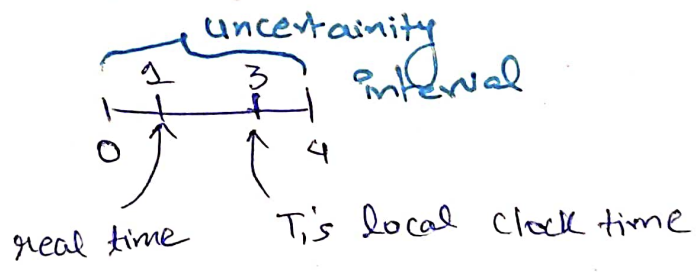 uncertainity
interval
1 3
0 4
real time
T₁'s local clock time